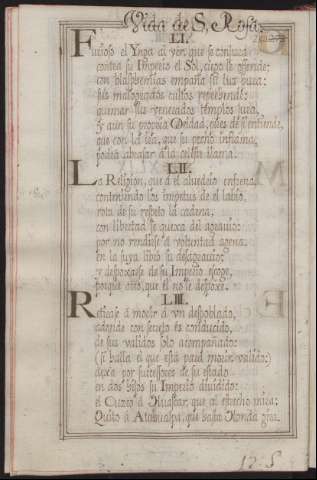 Vida de S. Rosa.
LI.
Furioso el Ynga al ver, que se conjura
contra su Imperio el Sol, ciego se ofende;
con blasphemias empaña su luz pura:
sus mallogrados cultos reprehende:
quemar sus venerados templos jura,
y aun su propria Deidad, pues de se enciende,
que con la luz, que su pecho inflama,
podra abrasar a la celeste llama.
LII.
La Religion, que à el alvedrio enfrena,
conteniendo los impetus de el labio,
rota de su respeto la cadena,
con libertad se quexa del agravio:
por no rendirse à voluntad agena,
en la suya libró su desagravio:
y despojarse de su Imperio escoge,
porque otro, que el no se despoxe.
LIII.
Retirase à morir à un despoblado,
adonde con secreto es conducido,
de sus validos solo acompañado:
(si halla el que está para morir valido:)
dexa por successores de su estado
en dos hijos su Imperio dividido:
el Cuzco à Huascar, que al estrecho mira:
Quito à Atahualpa, que hasta